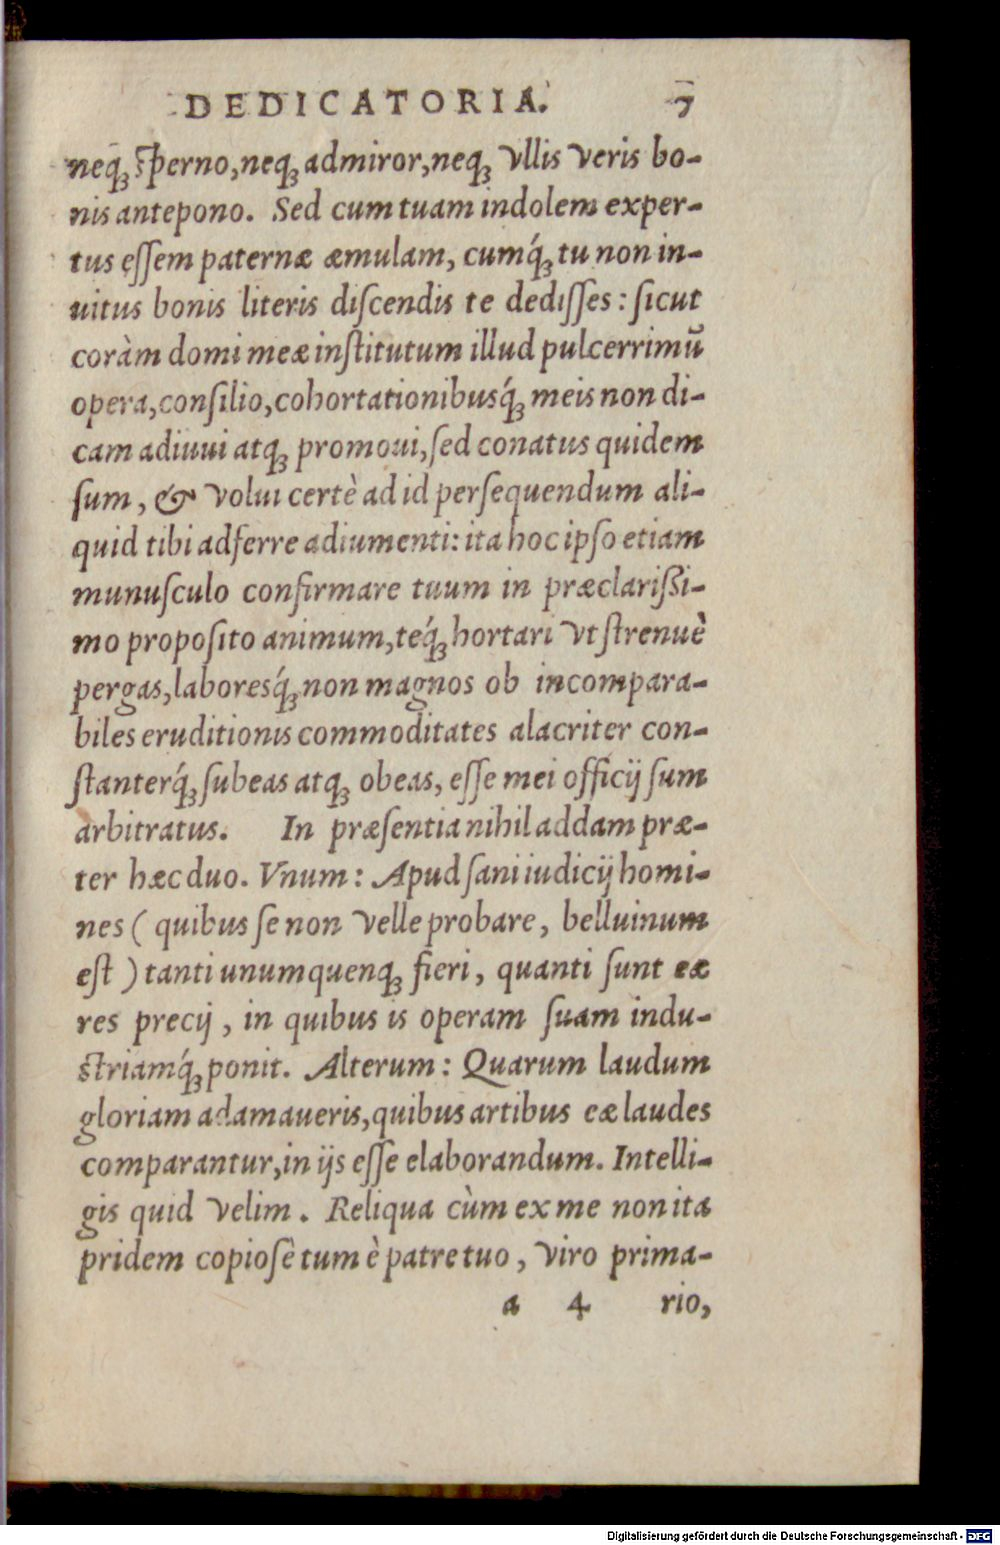 DEDICATORIA. 7
neq́ꝫ sperno, neqꝫ admiror, neqꝫ vllis veris bo-
nis antepono. Sed cum tuam indolem exper-
tus eſſem paternæ æmulam, cumq́ꝫ tu non in-
uitus bonis literis diſcendis te dediſſes: ſicut
coràm domi meæ inſtitutum illud pulcerrimū
opera, conſilio, cohortationibusq́ꝫ meis non di-
cam adiuui atqꝫ promoui, ſed conatus quidem
ſum, & volui certè ad id perſequendum ali-
quid tibi adferre adiumenti: ita hoc ipſo etiam
munuſculo confirmare tuum in præclariſſi-
mo propoſito animum, teq́ꝫ hortari vt ſtrenuè
pergas, laboresq́ꝫ non magnos ob incompara-
biles eruditionis commoditates alacriter con-
ſtanterq́ꝫ ſubeas atqꝫ obeas, eſſe mei officij ſum
arbitratus. In præſentia nihil addam præ-
ter hæc duo. Vnum: Apud ſani iudicij homi-
nes ( quibus ſe non velle probare, belluinum
eſt ) tanti unumquenqꝫ fieri, quanti ſunt eæ
res precij, in quibus is operam ſuam indu-
ſtriamq́ꝫ ponit. Alterum: Quarum laudum
gloriam adamaueris, quibus artibus eæ laudes
comparantur, in ijs eſſe elaborandum. Intelli-
gis quid velim. Reliqua cùm ex me non ita
pridem copioſè tum è patre tuo, viro prima-
a 4 rio,
Digitalisierung gefördert durch die Deutsche Forschungsgemeinschaft - DFG